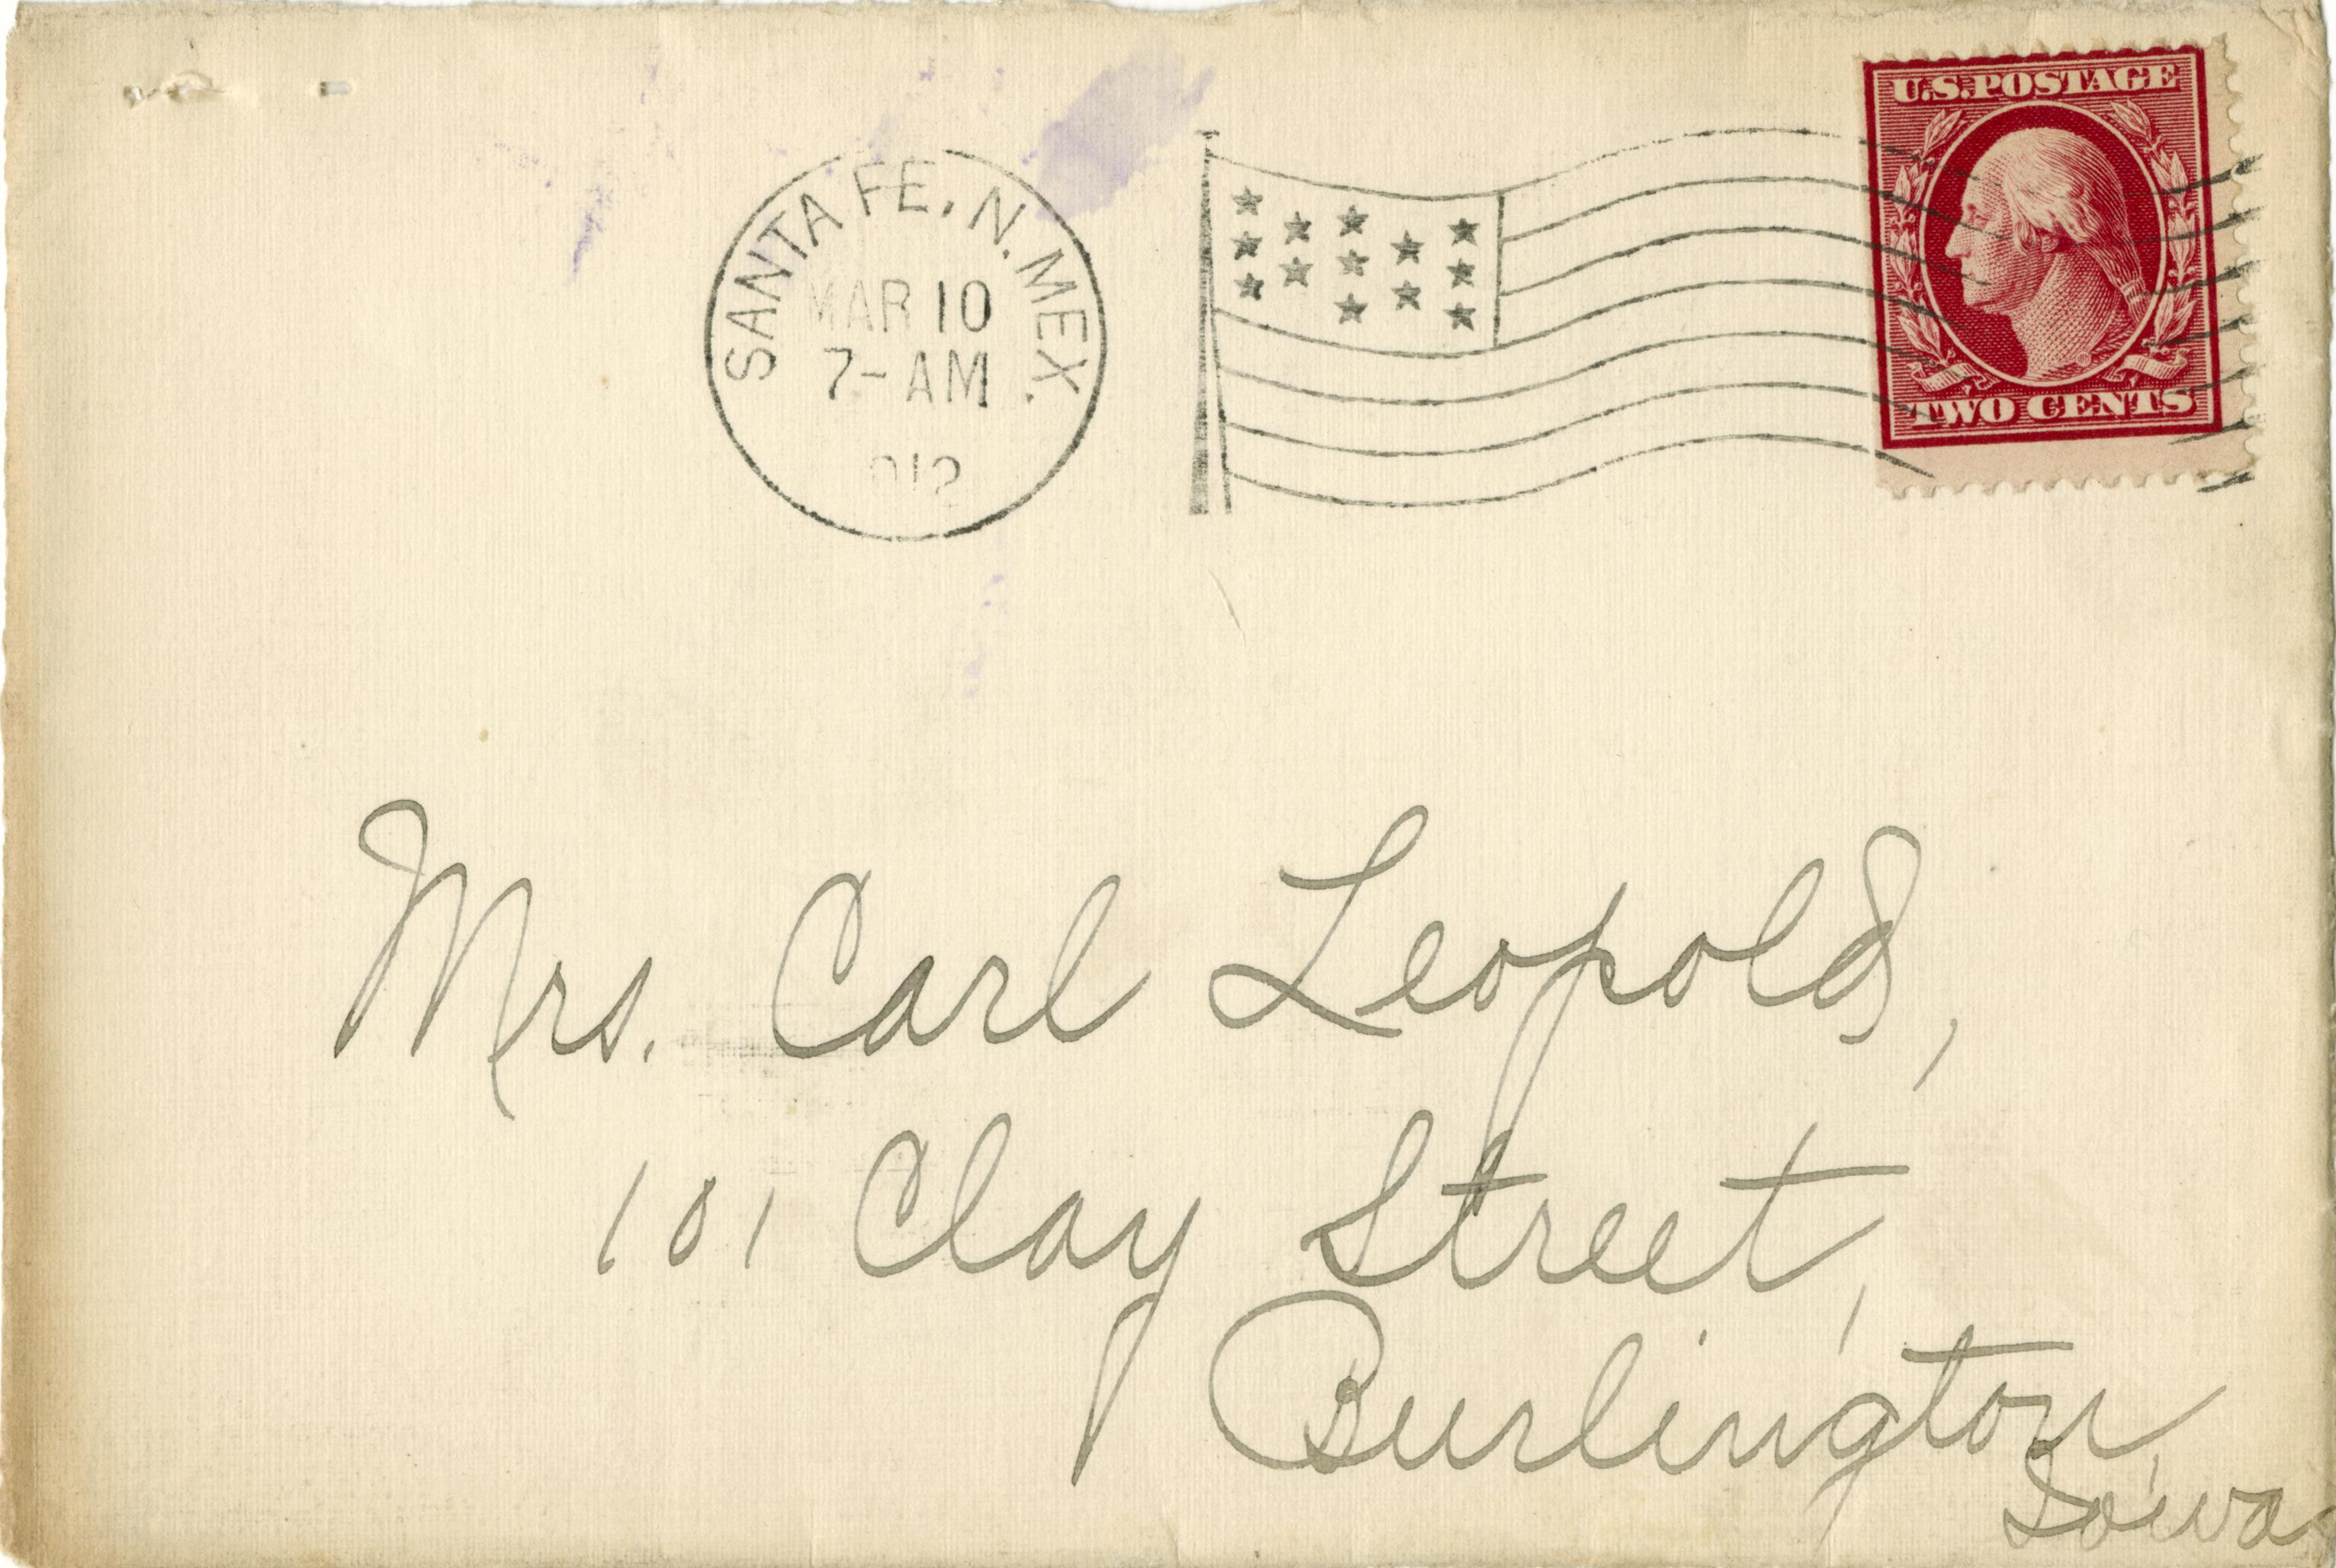 U.S. POSTAGE
SANTA FE, N. MEX.
MAR 10
7-AM
912
TWO CENTS
Mrs. Carl Leopold,
101 Clay Street,
Burlington,
Iowa